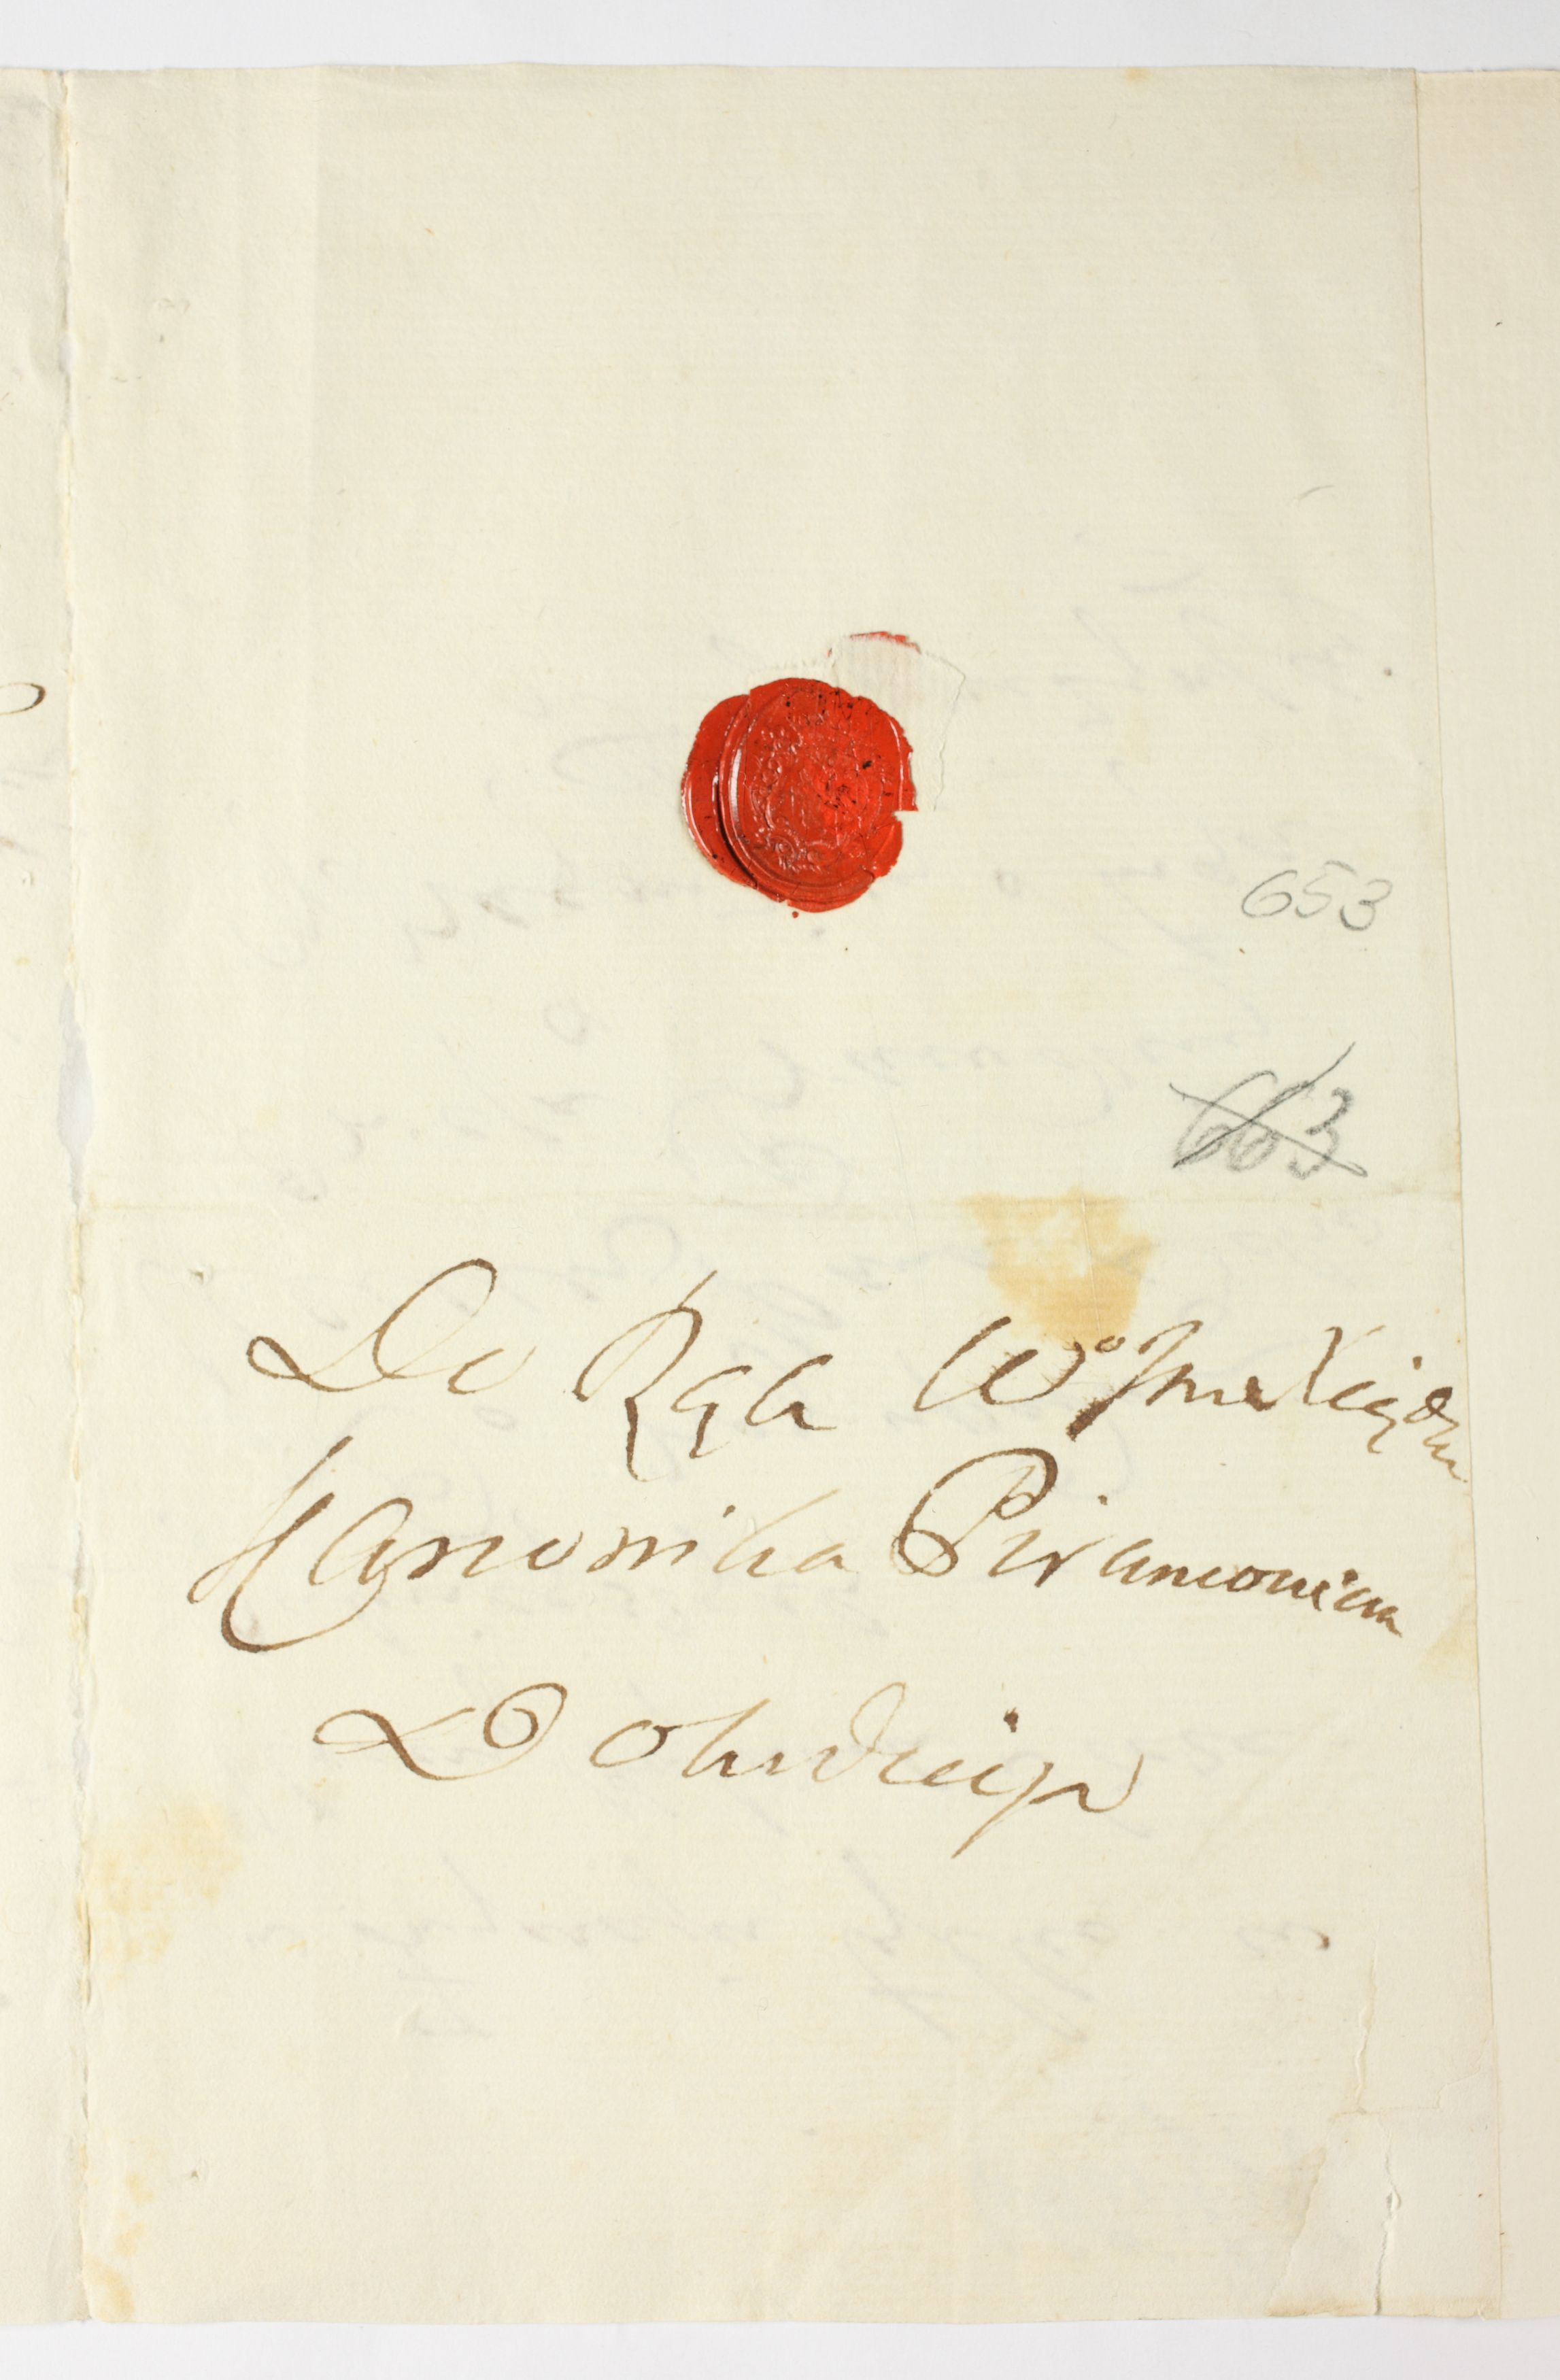 653
663
Do Rąk Wo Jmć Xiędza
Kanonika Piramowicza
Dobrodzieja